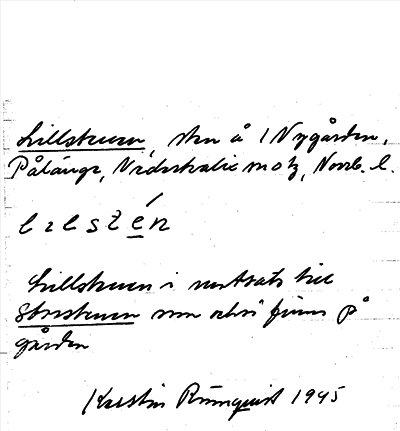 Lillstenen, sten å 1 Nygården,
Pålänge, Nederkalix sn o tg, Norrb. l.
lɩlstén
Lillstenen i motsats till
Storstenen som också finns på
gården
Kerstin Rönnquist 1945